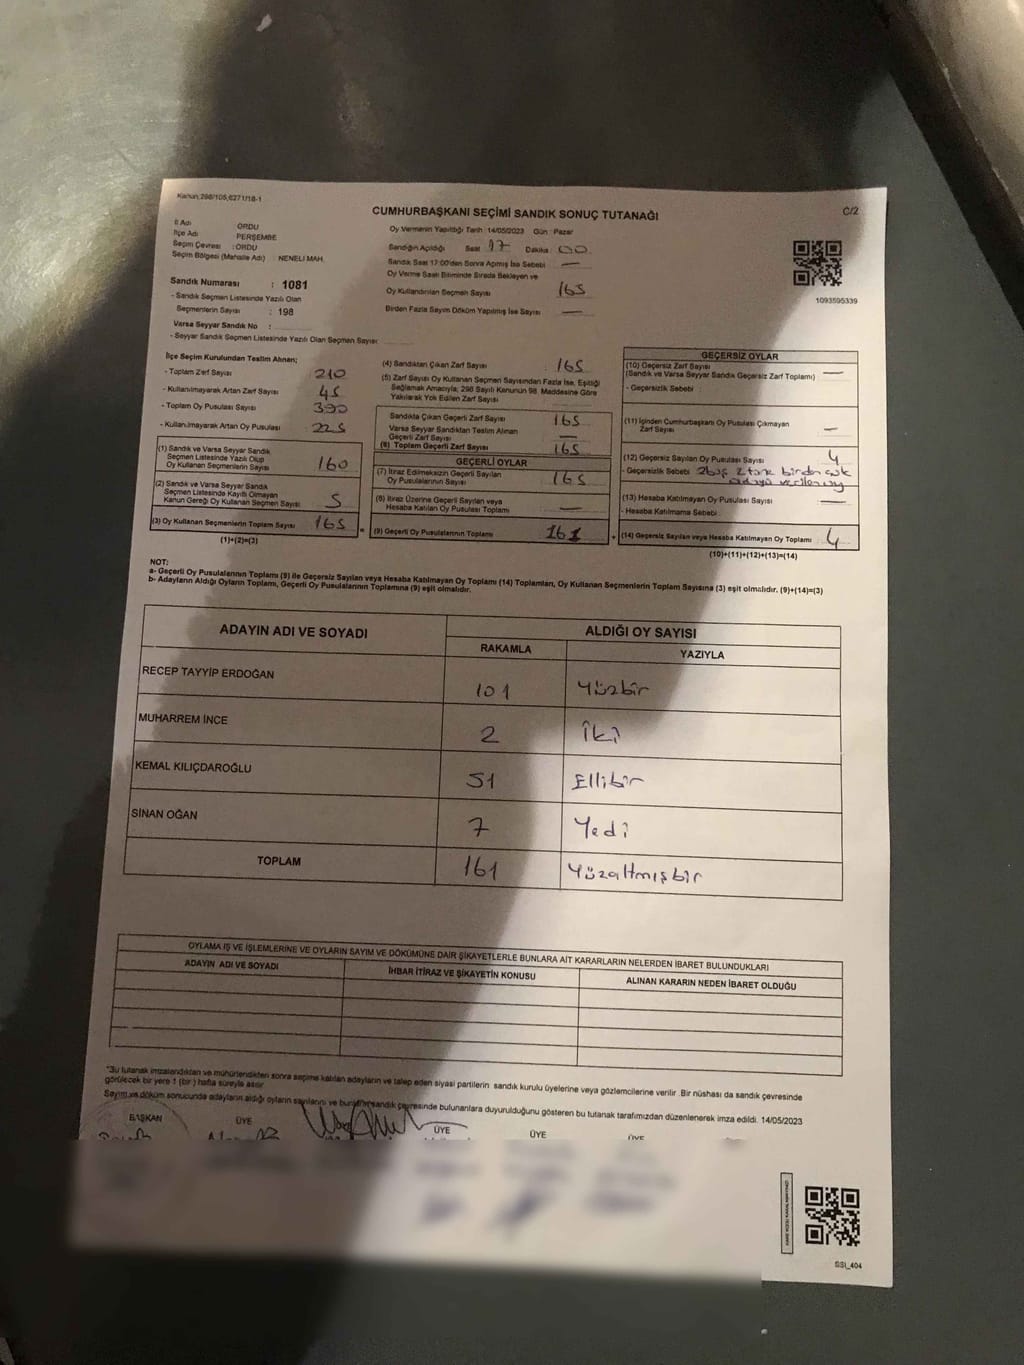 Kanun;298/105,6271/18-1
CUMHURBAŞKANI SEÇİMİ SANDIK SONUÇ TUTANAĞI
C/2
İl Adı ORDU
İlçe Adı : PERŞEMBE
Seçim Çevresi : ORDU
Seçim Bölgesi (Mahalle Adı) : NENELİ MAH.
Oy Vermenin Yapıldığı Tarih 14/05/2023 Gün : Pazar
Sandığın Açıldığı Saat 17 Dakika 00
Sandık Saat 17:00'den Sonra Açmış İse Sebebi —
Oy Verme Saati Bitiminde Sırada Bekleyen ve
Oy Kullandırılan Seçmen Sayısı 165
Birden Fazla Sayım Döküm Yapılmış İse Sayısı —
1093595339
Sandık Numarası : 1081
- Sandık Seçmen Listesinde Yazılı Olan
Seçmenlerin Sayısı : 198
Varsa Seyyar Sandık No :
- Seyyar Sandık Seçmen Listesinde Yazılı Olan Seçmen Sayısı
İlçe Seçim Kurulundan Teslim Alınan;
- Toplam Zarf Sayısı 210
- Kullanılmayarak Artan Zarf Sayısı 45
- Toplam Oy Pusulası Sayısı 390
- Kullanılmayarak Artan Oy Pusulası 225
(1) Sandık ve Varsa Seyyar Sandık
Seçmen Listesinde Yazılı Olup
Oy Kullanan Seçmenlerin Sayısı 160
(2) Sandık ve Varsa Seyyar Sandık
Seçmen Listesinde Kayıtlı Olmayan
Kanun Gereği Oy Kullanan Seçmen Sayısı 5
(3) Oy Kullanan Seçmenlerin Toplam Sayısı 165
(1)+(2)=(3)
(4) Sandıktan Çıkan Zarf Sayısı : 165
(5) Zarf Sayısı Oy Kullanan Seçmen Sayısından Fazla İse, Eşitliği
Sağlamak Amacıyla; 298 Sayılı Kanunun 98. Maddesine Göre
Yakılarak Yok Edilen Zarf Sayısı
Sandıkta Çıkan Geçerli Zarf Sayısı 165
Varsa Seyyar Sandıktan Teslim Alınan
Geçerli Zarf Sayısı —
(6) Toplam Geçerli Zarf Sayısı 165
GEÇERLİ OYLAR
(7) İtiraz Edilmeksizin Geçerli Sayılan
Oy Pusulalarının Sayısı 165
(8) İtiraz Üzerine Geçerli Sayılan veya
Hesaba Katılan Oy Pusulası Toplamı —
= (9) Geçerli Oy Pusulalarının Toplamı 161
GEÇERSİZ OYLAR
(10) Geçersiz Zarf Sayısı
(Sandık ve Varsa Seyyar Sandık Geçersiz Zarf Toplamı) —
- Geçersizlik Sebebi
(11) İçinden Cumhurbaşkanı Oy Pusulası Çıkmayan
Zarf Sayısı —
(12) Geçersiz Sayılan Oy Pusulası Sayısı 4
- Geçersizlik Sebebi 2 boş 2 tane birden çok
(13) Hesaba Katılmayan Oy Pusulası Sayısı —
- Hesaba Katılmama Sebebi :
+ (14) Geçersiz Sayılan veya Hesaba Katılmayan Oy Toplamı 4
(10)+(11)+(12)+(13)=(14)
NOT:
a- Geçerli Oy Pusulalarının Toplamı (9) ile Geçersiz Sayılan veya Hesaba Katılmayan Oy Toplamı (14) Toplamları, Oy Kullanan Seçmenlerin Toplam Sayısına (3) eşit olmalıdır. (9)+(14)=(3)
b- Adayların Aldığı Oyların Toplamı, Geçerli Oy Pusulalarının Toplamına (9) eşit olmalıdır.
ADAYIN ADI VE SOYADI ALDIĞI OY SAYISI
RAKAMLA YAZIYLA
RECEP TAYYİP ERDOĞAN 101 Yüzbir
MUHARREM İNCE 2 İki
KEMAL KILIÇDAROĞLU 51 Ellibir
SİNAN OĞAN 7 Yedi
TOPLAM 161 Yüzaltmışbir
OYLAMA İŞ VE İŞLEMLERİNE VE OYLARIN SAYIM VE DÖKÜMÜNE DAİR ŞİKAYETLERLE BUNLARA AİT KARARLARIN NELERDEN İBARET BULUNDUKLARI
ADAYIN ADI VE SOYADI İHBAR İTİRAZ VE ŞİKAYETİN KONUSU ALINAN KARARIN NEDEN İBARET OLDUĞU
"Bu tutanak imzalandıktan ve mühürlendikten sonra seçime katılan adayların ve talep eden siyasi partilerin sandık kurulu üyelerine veya gözlemcilerine verilir .Bir nüshası da sandık çevresinde
görülecek bir yere 1 (bir) hafta süreyle asılır
Sayım ve döküm sonucunda adayların aldığı oyların sayılarını ve bunların sandık çevresinde bulunanlara duyurulduğunu gösteren bu tutanak tarafımızdan düzenlenerek imza edildi. 14/05/2023
BAŞKAN ÜYE ÜYE ÜYE ÜYE
SSI_404